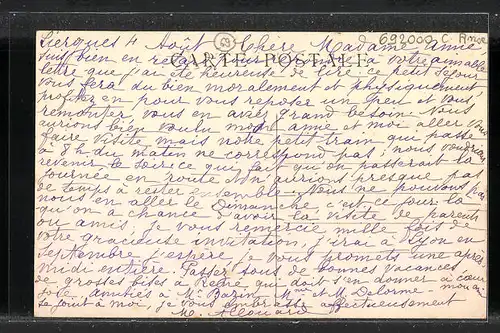 69
692000 C
Lierques 4 Août Chère Madame Anne
suis bien en retard à votre aimable
CARTE POSTALE
lettre que j'ai été heureuse de lire. ce petit séjour
vous fera du bien moralement et physiquement,
profitez en pour vous reposer un peu et vous
remonter vous en avez grand besoin. Nous
aurions bien voulu anne et moi aller vous
faire visite mais notre petit tram qui passe
à 8h du matin ne correspond pas, nous voudrions
revenir le soir ce qui fait qu'on passerait la
journée en route on n'aurions presque pas
de temps à rester ensemble. Nous ne pouvons pas
nous en aller le Dimanche c'est ce jour là
qu'on a chance d'avoir la visite de parents
ou amis, je vous remercie mille fois de
votre gracieuse invitation, j'irai à Lyon en
Septembre j'espère, je vous promets une après
midi entière. Passez tous de bonnes vacances
de grosses bises à René qui doit s'en donner à cœur
joie. amitiés à Mr Bazin, Mme et M Delorme.
se joint à moi, je vous embrasse affectueusement
M. Allouard